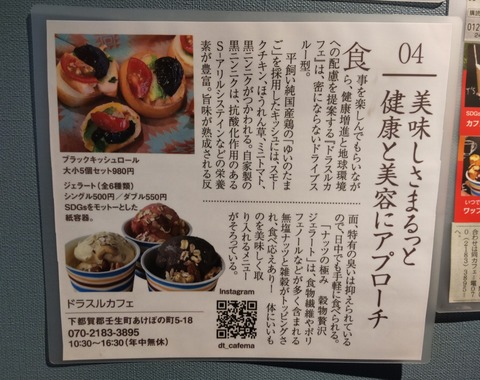 04
美味しさまるっと
健康と美容にアプローチ
食事を楽しんでもらいなが
ら、健康増進と地球環境
への配慮を提案する『ドラスルカ
フェ』は、密にならないドライブス
ルー型。
平飼い純国産鶏の「ゆいのたま
ご」を採用したキッシュには、スモー
クチキン、ほうれん草、ミニトマト、
黒ニンニクがつかわれる。自家製の
黒ニンニクは、抗酸化作用のある
S－アリルシステインなどの栄養
素が豊富。旨味が熟成される反
面、特有の臭いは抑えられている
ので、日中でも手軽に食べられる。
「ナッツの極み 穀物贅沢
ジェラート」は、食物繊維やポリ
フェノールなどが多く含まれる
無塩ナッツと雑穀がトッピングさ
れ、食べ応えあり！ 体にいいも
のを美味しく取
り入れるメニュー
がそろっている。
ブラックキッシュロール
大小5個セット980円
ジェラート（全6種類）
シングル500円／ダブル550円
SDGsをモットーとした
紙容器。
ドラスルカフェ
下都賀郡壬生町あけぼの町5-18
070-2183-3895
10:30～16:30（年中無休）
Instagram
dt_cafema